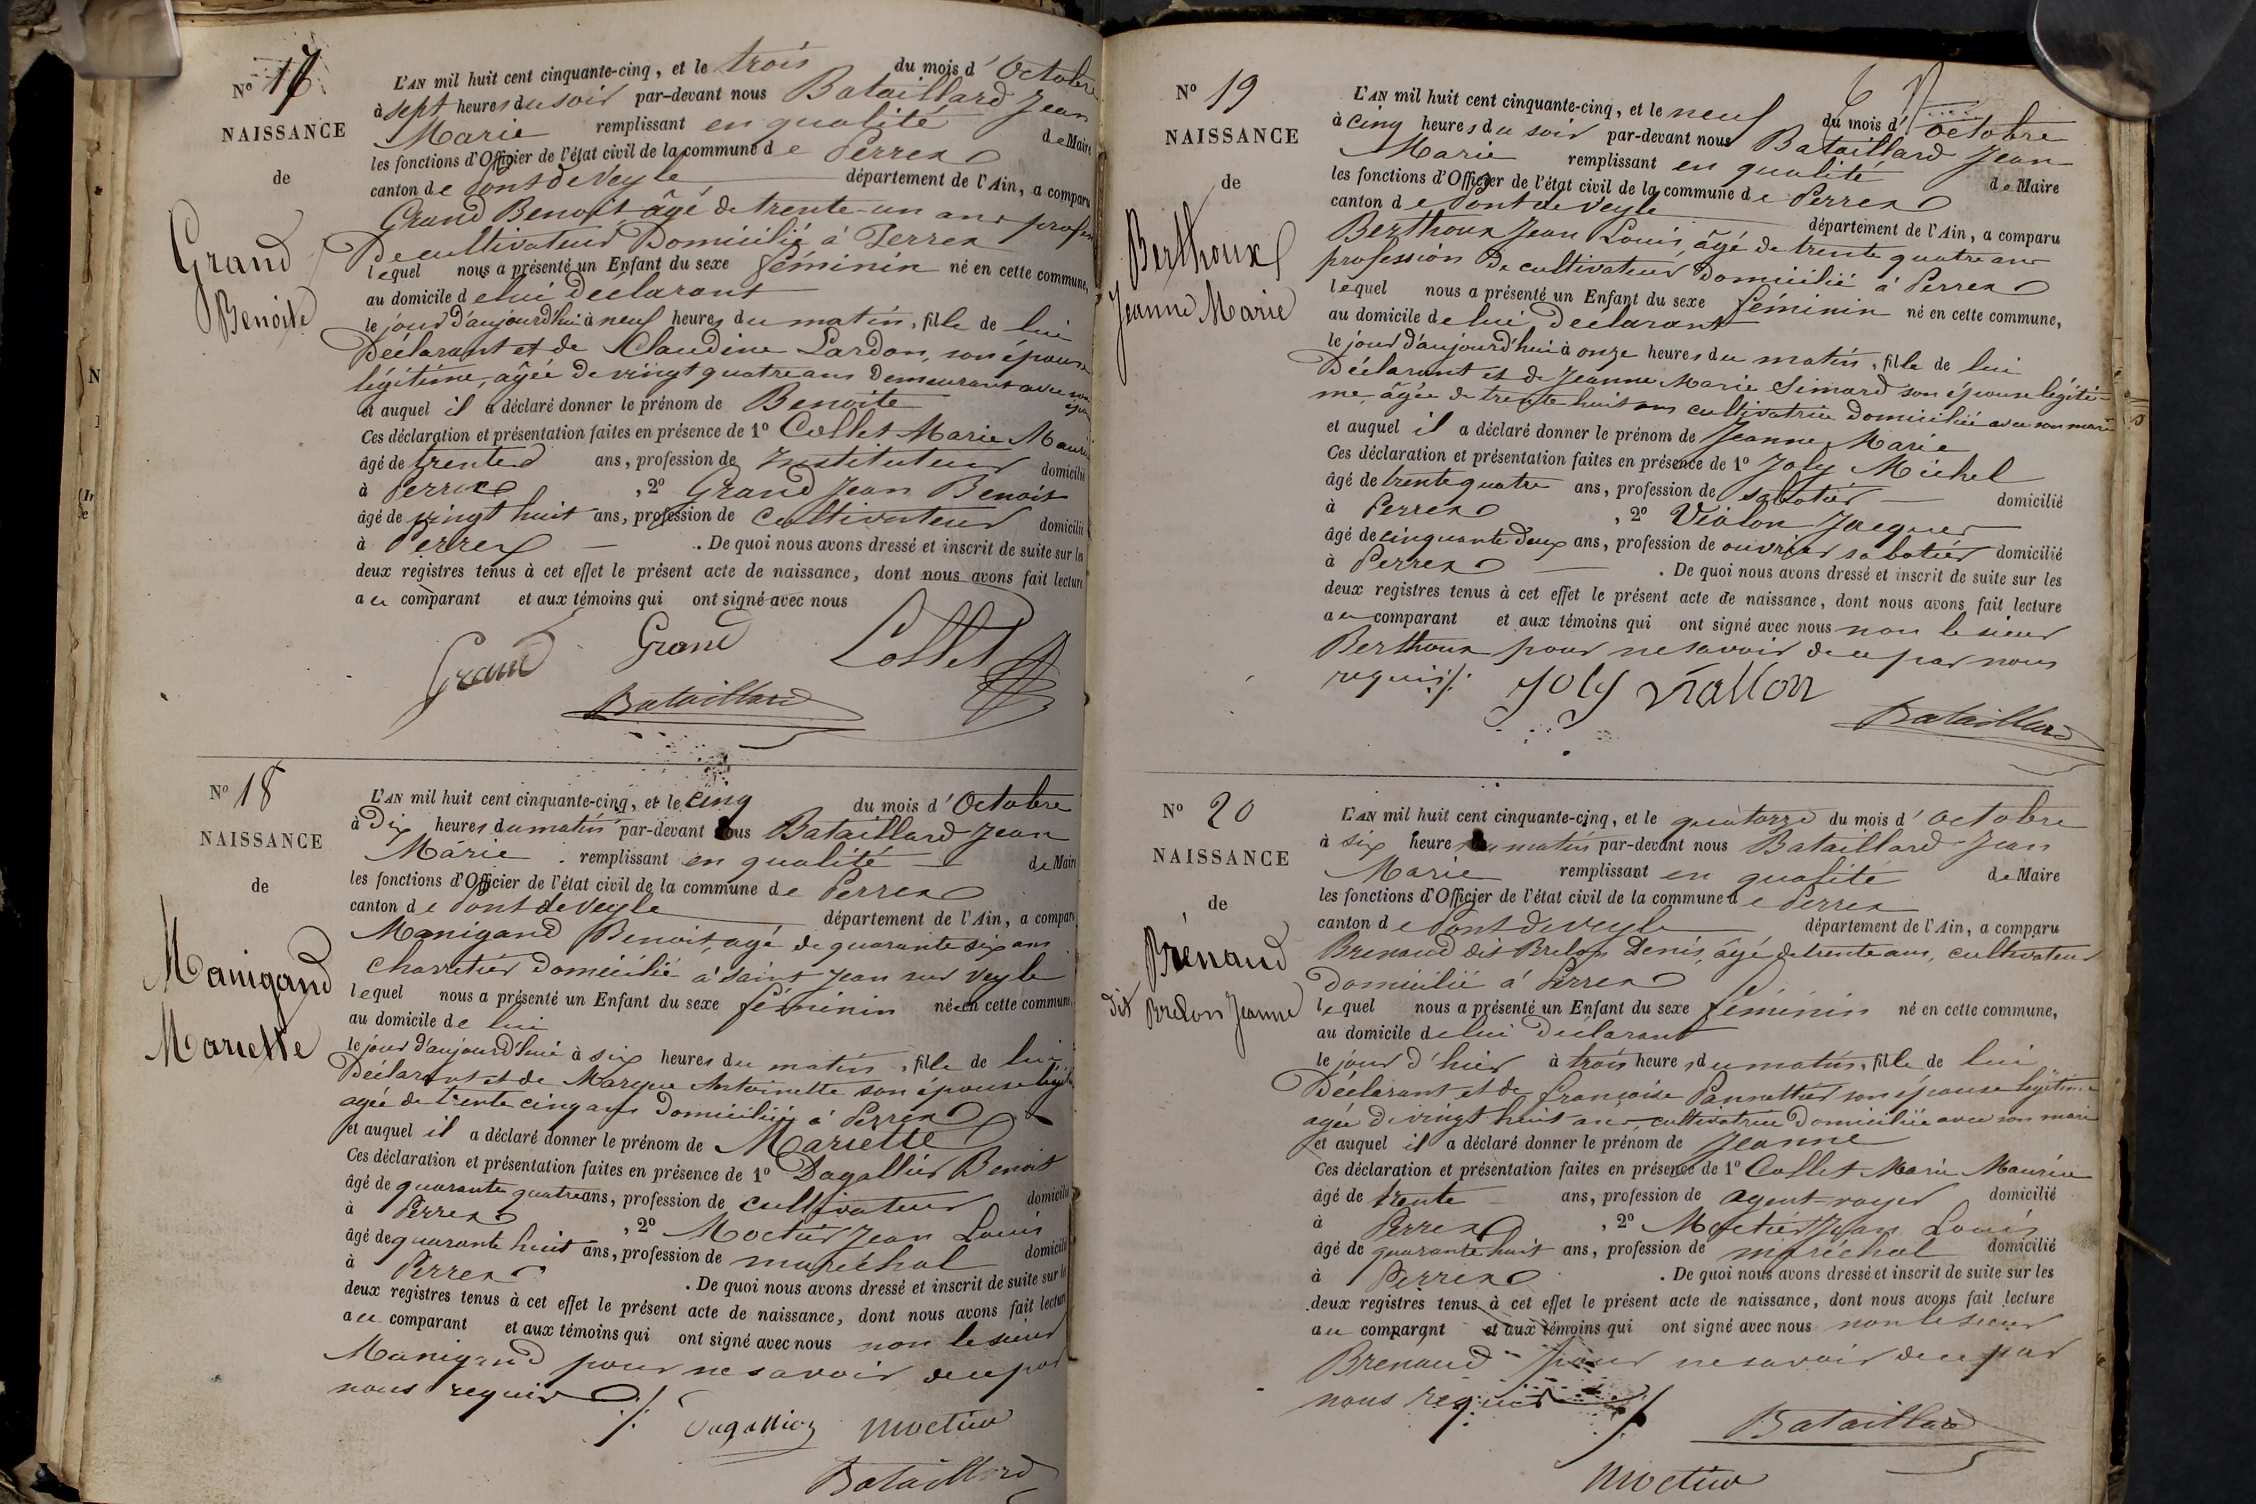 N° 17
NAISSANCE
de
Grand
Benoite
L'AN mil huit cent cinquante-cinq, et le trois du mois d'Octobre
à sept heures du soir par-devant nous Bataillard Jean
Marie remplissant en qualité de Maire
les fonctions d'Officier de l'état civil de la commune de Perrex
canton de Pont de Veyle département de l'Ain, a comparu
Grand Benoit, âgé de trente-un ans profession
De cultivateur Domicilié à Perrex
lequel nous a présenté un Enfant du sexe féminin né en cette commune,
au domicile de lui Déclarant
le jour d'aujourd'hui à neuf heures du matin, fille de lui
Déclarant et de Claudine Lardon, son épouse
légitime, âgée de vingt quatre ans Demeurant avec son époux
et auquel il a déclaré donner le prénom de Benoite
Ces déclaration et présentation faites en présence de 1° Collet Marie Maurice
âgé de trente ans, profession de Instituteur domicilié
à Perrex, 2° Grand Jean Benoit
âgé de vingt huit ans, profession de cultivateur domicilié
à Perrex. De quoi nous avons dressé et inscrit de suite sur les
deux registres tenus à cet effet le présent acte de naissance, dont nous avons fait lecture
au comparant et aux témoins qui ont signé avec nous
Grand Grand Collet
Bataillard
N° 18
NAISSANCE
de
Manigand
Mariette
L'AN mil huit cent cinquante-cinq, et le cinq du mois d'Octobre
à Dix heures du matin par-devant nous Bataillard Jean
Marie remplissant en qualité de Maire
les fonctions d'Officier de l'état civil de la commune de Perrex
canton de Pont de Veyle département de l'Ain, a comparu
Manigand Benoit, agé de quarante six ans
charretier Domicilié à Saint Jean sur Veyle
lequel nous a présenté un Enfant du sexe féminin né en cette commune,
au domicile de lui
le jour d'aujourd'hui à six heures du matin, fille de lui
Déclarant et de Antoinette son épouse
agée de trente cinq ans Domiciliée à Perrex
et auquel il a déclaré donner le prénom de Mariette
Ces déclaration et présentation faites en présence de 1° Dagallier Benoit
âgé de quarante quatre ans, profession de cultivateur domicilié
à Perrex, 2° Moctier Jean Louis
âgé de quarante huit ans, profession de maréchal domicilié
à Perrex. De quoi nous avons dressé et inscrit de suite sur les
deux registres tenus à cet effet le présent acte de naissance, dont nous avons fait lecture
au comparant et aux témoins qui ont signé avec nous non le sieur
Manigand pour ne savoir de ce par
nous requis ./.
Dagallier Moctier
Bataillard
N° 19
NAISSANCE
de
Berthoux
Jeanne Marie
L'AN mil huit cent cinquante-cinq, et le neuf du mois d'Octobre
à cinq heures du soir par-devant nous Bataillard Jean
Marie remplissant en qualité de Maire
les fonctions d'Officier de l'état civil de la commune de Perrex
canton de Pont de Veyle département de l'Ain, a comparu
Berthoux Jean Louis, âgé de trente quatre ans
profession De cultivateur Domicilié à Perrex
lequel nous a présenté un Enfant du sexe féminin né en cette commune,
au domicile de lui Déclarant
le jour d'aujourd'hui à onze heures du matin, fille de lui
Déclarant et de Jeanne Marie Simard son épouse légiti-
me, âgée de trente huit ans cultivatrice Domiciliée avec son mari
et auquel il a déclaré donner le prénom de Jeanne Marie
Ces déclaration et présentation faites en présence de 1° Joly Michel
âgé de trente quatre ans, profession de sabotier domicilié
à Perrex, 2° Violon Jacques
âgé de cinquante deux ans, profession de ouvrier sabotier domicilié
à Perrex. De quoi nous avons dressé et inscrit de suite sur les
deux registres tenus à cet effet le présent acte de naissance, dont nous avons fait lecture
au comparant et aux témoins qui ont signé avec nous non le sieur
Berthoux pour ne savoir de ce par nous
requis ./. Joly Viallon
Bataillard
N° 20
NAISSANCE
de
Brenaud
dit Brelon Jeanne
L'AN mil huit cent cinquante-cinq, et le quatorze du mois d'Octobre
à six heures du matin par-devant nous Bataillard Jean
Marie remplissant en qualité de Maire
les fonctions d'Officier de l'état civil de la commune de Perrex
canton de Pont de Veyle département de l'Ain, a comparu
Brenaud dit Brelon Denis, âgé de trente ans, cultivateur
Domicilié à Perrex
lequel nous a présenté un Enfant du sexe féminin né en cette commune,
au domicile de lui Déclarant
le jour d'hier à trois heures du matin, fille de lui
Déclarant et de françoise Pannetier son épouse légitime
agée de vingt huit ans cultivatrice Domiciliée avec son mari
et auquel il a déclaré donner le prénom de Jeanne
Ces déclaration et présentation faites en présence de 1° Collet Marie Maurice
âgé de trente ans, profession de agent-voyer domicilié
à Perrex, 2° Moctier Jean Louis
âgé de quarante huit ans, profession de maréchal domicilié
à Perrex. De quoi nous avons dressé et inscrit de suite sur les
deux registres tenus à cet effet le présent acte de naissance, dont nous avons fait lecture
au comparant et aux témoins qui ont signé avec nous non le sieur
Brenaud pour ne savoir de ce par
nous requis ./.
Bataillard
Moctier